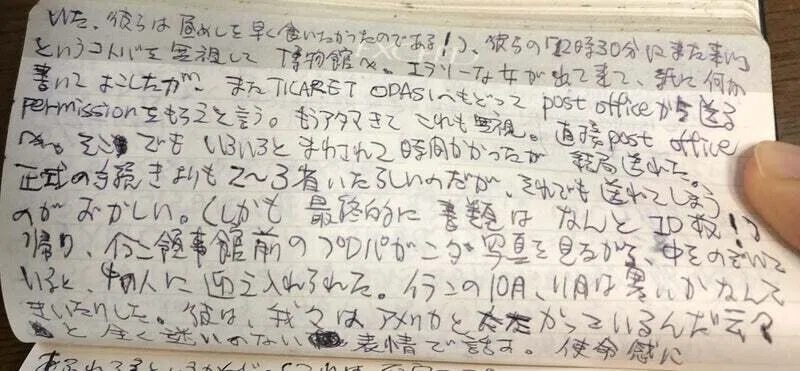 いた。彼らは昼めしを早く食いたかったのである!)、彼らの「12時30分にまた来い」
というコトバを無視して博物館へ。エラソーな女が出て来て、紙に何か
書いてよこしたが、またTICARET ODASIへもどってpost officeから送る
permissionをもらえと言う。もうアタマきてこれも無視。直接post office
へ。そこでもいろいろとまわされて時間かかったが結局送れた。
正式の手続きよりも2〜3省いたらしいのだが、それでも送れてしまう
のがおかしい。(しかも最終的に書類はなんと10枚!)
帰り、イラン領事館前のプロパガンダ写真を見るがてら、中をのぞいて
いると、中の人に迎え入れられた。イランの10月、11月は寒いかなんて
きいたりした。彼は、我々はアメリカとたたかっているんだ云々
と全く迷いのない表情で話す。使命感に